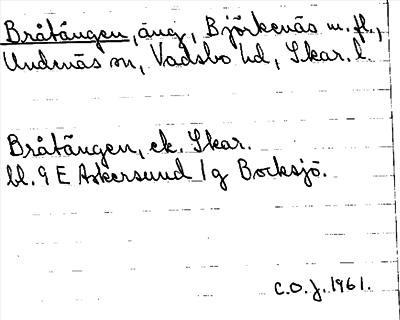 Bråtängen, äng, Björkenäs m. fl.,
Undenäs sn, Vadsbo hd, Skar. l.
Bråtängen, ek. Skar.
bl. 9 E Askersund 1 g Bocksjö.
C.O.J. 1961.